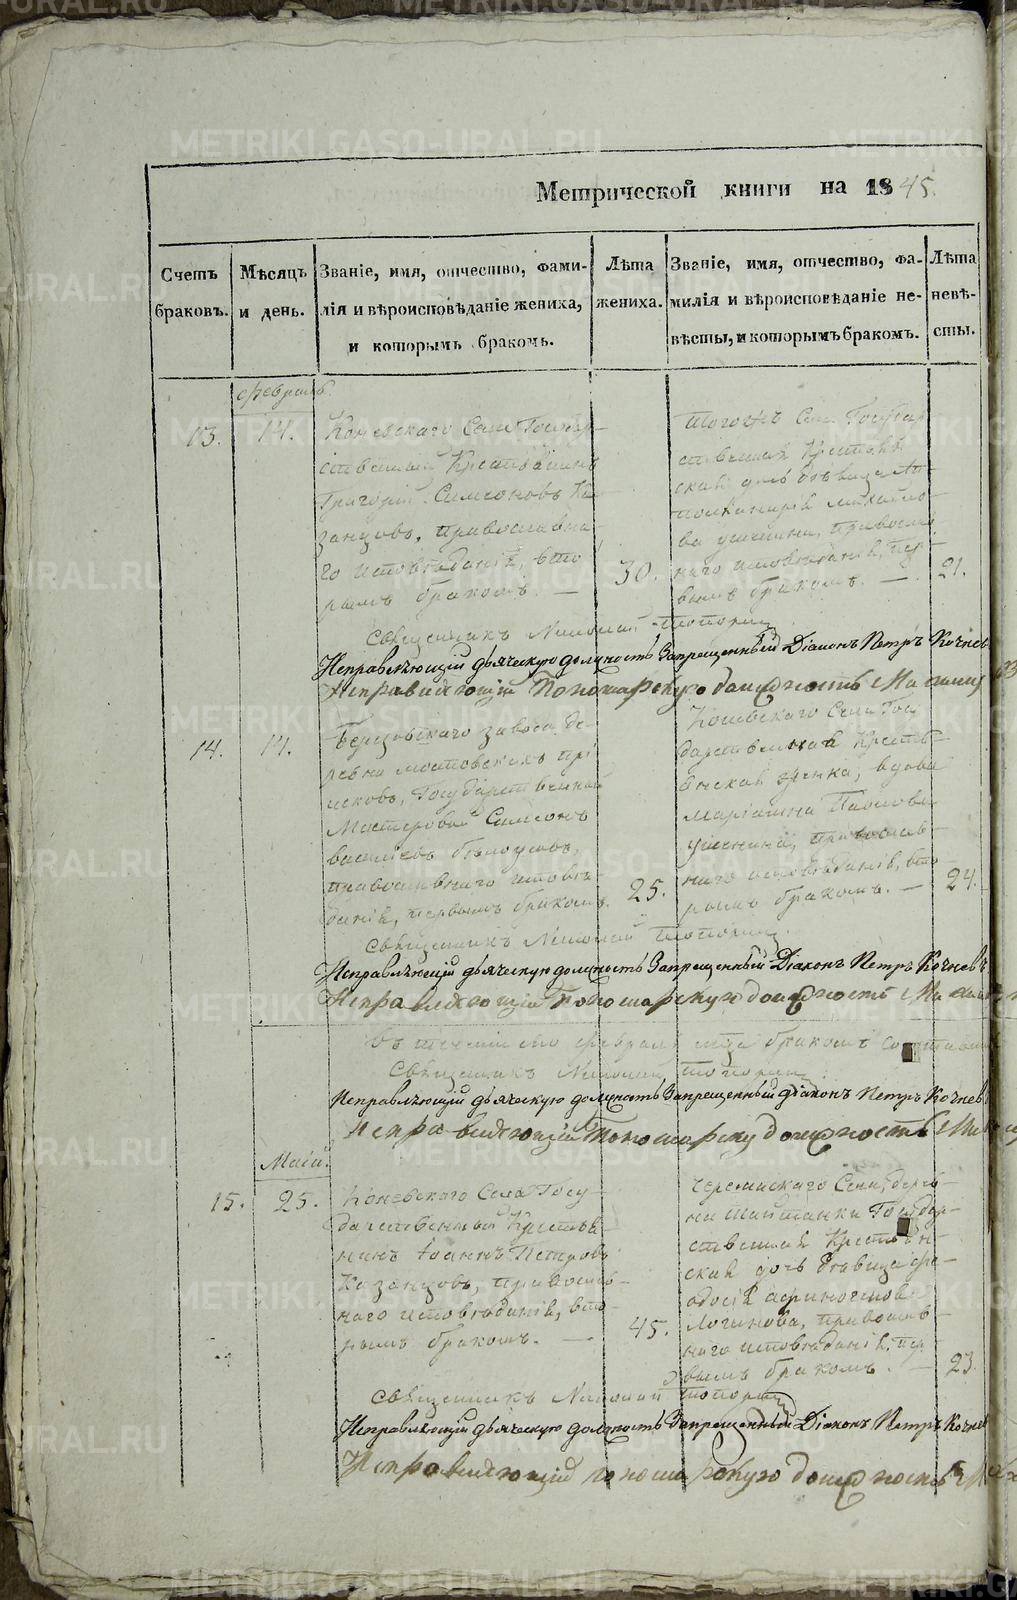 Метрической книги на 1845.
Счетъ браковъ.
Мѣсяцъ и день.
Званіе, имя, отчество, фами-
лія и вѣроисповѣданіе жениха,
и которымъ бракомъ.
Лѣта жениха.
Званіе, имя, отчество, фа-
милія и вѣроисповѣданіе не-
вѣсты, и которымъ бракомъ.
Лѣта невѣ-
сты.
февраль
13.
14.
Коневскаго Села Государ-
ственный Крестьянинъ
Григорій Симеоновъ Ка-
занцовъ, православна-
го исповѣданія, вто
рымъ бракомъ. —
30.
тогожъ Села Государ
ственная Крестьян
ская дочь дѣвица
Михайло-
ва, православ
наго исповѣданія, пер-
вымъ бракомъ. —
21.
Священникъ Николай Топорин
Исправляющій дьяческую должность Запрещенный Діаконъ Петръ Кочнев
Исправляющій Пономарскую должность
14.
14.
завода де-
ревни Мостовскихъ прі
исковъ, Государственный
Мастеровой Симеонъ
Васильевъ
православнаго исповѣ
данія, первымъ бракомъ.
25.
Коневскаго Села Госу
дарственная Крестьян
янская жонка, вдова
Маріамна Павлова
православ-
наго исповѣданія, вто
рымъ бракомъ. —
24.
Священникъ Николай Топорин
Исправляющій дьяческую должность Запрещенный Діаконъ Петръ Кочневъ
Исправляющій Пономарскую должность
Въ теченіи сего февраля мца бракомъ
Священникъ Николай Топорин
Исправляющій дьяческую должность Запрещенный діаконъ Петръ Кочнев
Исправляющій Пономарску должность
Маія.
15.
25.
Коневскаго Села Госу-
дарственный Крестья
нинъ Іоаннъ Петровъ
Казанцовъ, православ-
наго исповѣданія, вто-
рымъ бракомъ. —
45.
Села, дерев-
ни Таштанки Государ-
ственная Крестьян-
ская дочь дѣвица Ѳе-
одосія
Логинова, православ-
наго исповѣданія, пер
вымъ бракомъ. —
23.
Священникъ Николай Топорин
Исправляющій дьяческую должность Запрещенный Діаконъ Петръ Кочнев
Исправляющій пономарскую должность